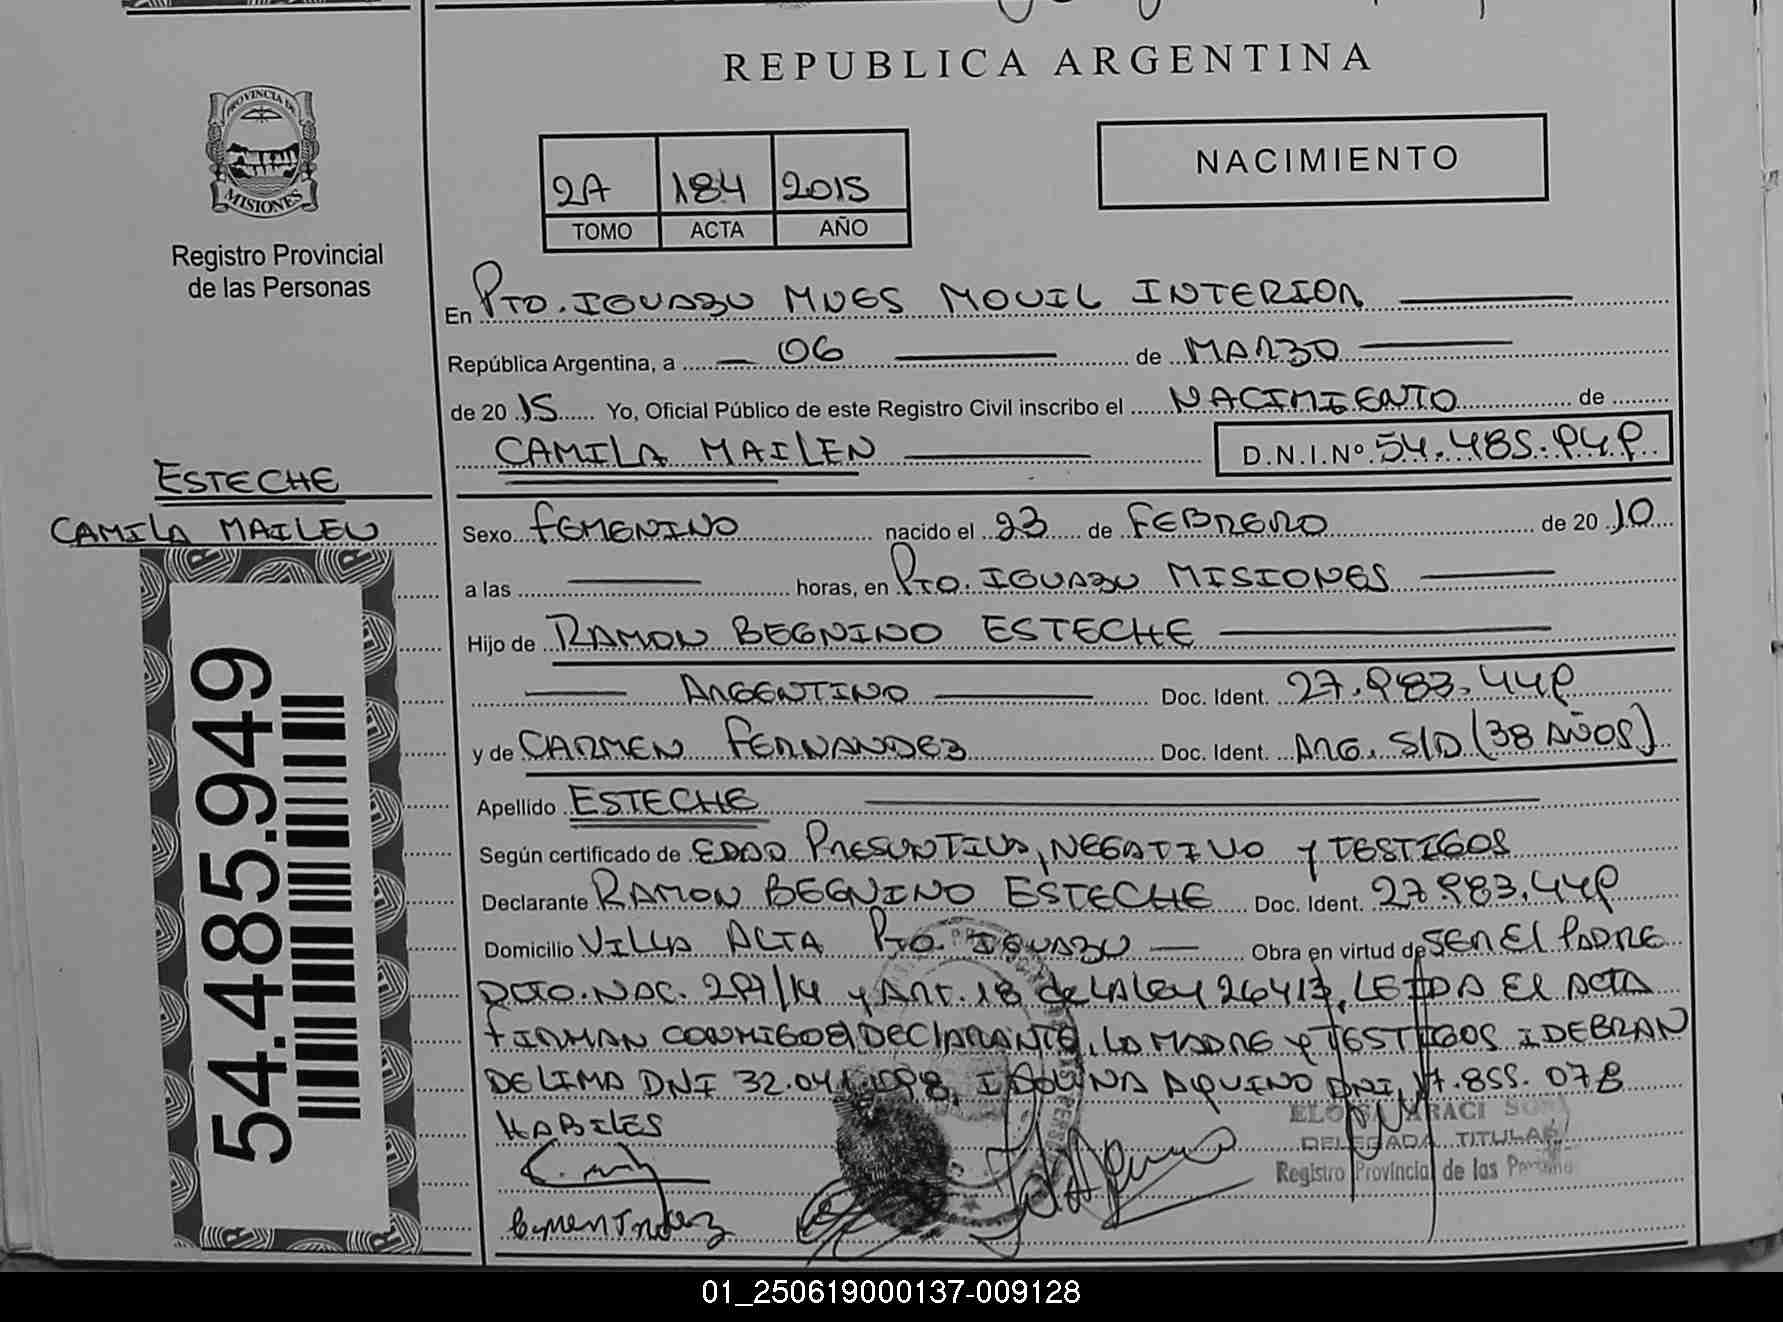 REPUBLICA ARGENTINA
PROVINCIA DE
MISIONES
Registro Provincial
de las Personas
2A 184 2015
TOMO ACTA AÑO
NACIMIENTO
En PTO. IGUAZU MNES MOVIL INTERIOR
República Argentina, a 06 de MARZO
de 20 15 Yo, Oficial Público de este Registro Civil inscribo el NACIMIENTO de
CAMILA MAILEN D.N.I.Nº 54.485.949
ESTECHE
CAMILA MAILEN
54.485.949
Sexo FEMENINO nacido el 23 de FEBRERO de 20 10
a las horas, en PTO. IGUAZU MISIONES
Hijo de RAMON BEGNINO ESTECHE
ARGENTINO Doc. Ident. 27.983.449
y de CARMEN FERNANDEZ Doc. Ident. ARG. S/D (38 AÑOS)
Apellido ESTECHE
Según certificado de EDAD PRESUNTIVA, NEGATIVO y TESTIGOS
Declarante RAMON BEGNINO ESTECHE Doc. Ident. 27.983.449
Domicilio VILLA ALTA PTO. IGUAZU Obra en virtud de SER El PADRE
DCTO. NAC. 297/14 y ART. 18 de LA LEY 26413, LEIDA El ACTA
FIRMAN CONMIGO El DECLARANTE, LA MADRE y TESTIGOS IDEBRAN
DE LIMA DNI 32.041.098, AQUINO DNI 17.855.078
HABILES
DELEGADA TITULAR
Registro Provincial de las Personas
01_250619000137-009128